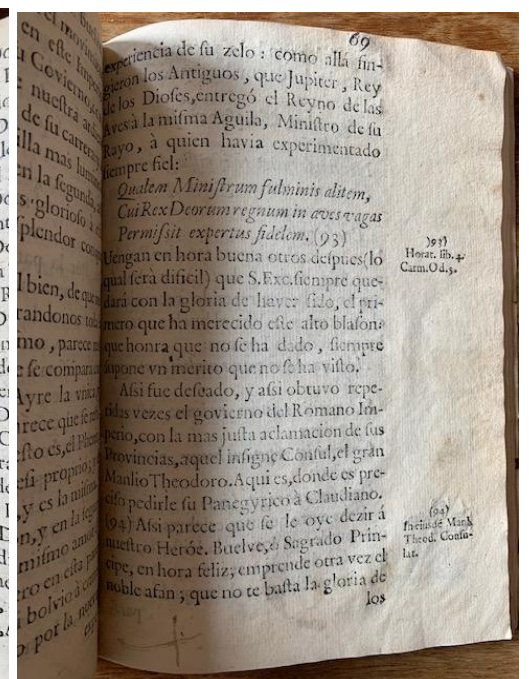 en este
Govierno
nuestra
de su carrera
illa mas
n la segunda
glorioso à
splendor
l bien, de que
randonos
mo, parece
e se compara
Ayre la vnica
rece que se
sto es, el
esi proprio,
y es la misma
n, y en la
mismo amor
ro en esta
bolvio à
por la
69
experiencia de su zelo: como allá fin-
gieron los Antiguos, que Jupiter, Rey
de los Dioses, entregó el Reyno de las
Aves à la misma Aguila, Ministro de su
Rayo, à quien havia experimentado
siempre fiel:
Qualem Ministrum fulminis alitem,
Cui Rex Deorum regnum in aves vagas
Permissit expertus fidelem. (93)
Vengan en hora buena otros despues (lo
qual serà dificil) que S. Exc. siempre que-
dará con la gloria de haver sido, el pri-
mero que ha merecido este alto blason:
que honra que no se ha dado, siempre
supone vn merito que no se ha visto.
Assi fue deseado, y assi obtuvo repe-
tidas vezes el govierno del Romano Im-
perio, con la mas justa aclamacion de sus
Provincias, aquel insigne Consul, el gran
Manlio Theodoro. Aqui es, donde es pre-
ciso pedirle su Panegyrico à Claudiano.
(94) Assi parece que se le oye dezir á
nuestro Heróe. Buelve, ò Sagrado Prin-
cipe, en hora feliz; emprende otra vez el
noble afán; que no te basta la gloria de
los
)93)
Horat. lib. 4.
Carm. Od. 3.
(94)
In eiusdē Manl.
Theod. Consu-
lat.